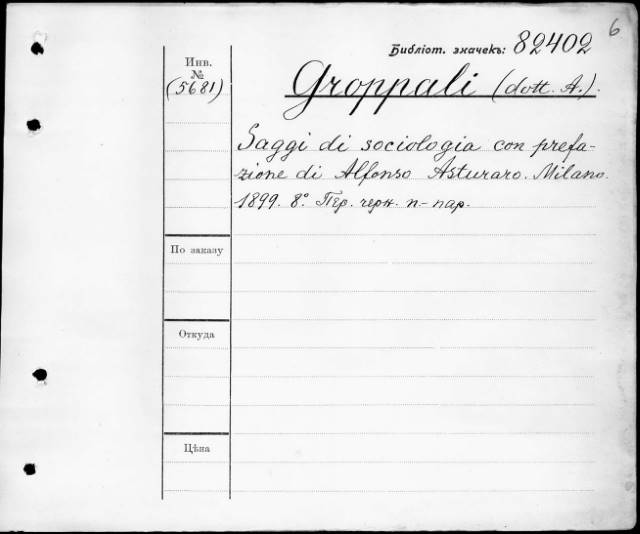 6
Библіот. значекъ: 82402
Инв.
№
(5681)
Groppali (dott. A.).
Saggi di sociologia con prefa-
zione di Alfonso Asturaro. Milano.
1899. 8º. Пер. черн. п-пар.
По заказу
Откуда
Цѣна